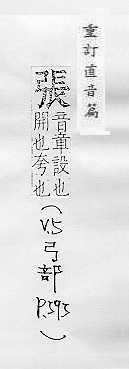 重訂直音篇
張
音章設也
開也夸也
(V.5弓部P.595)